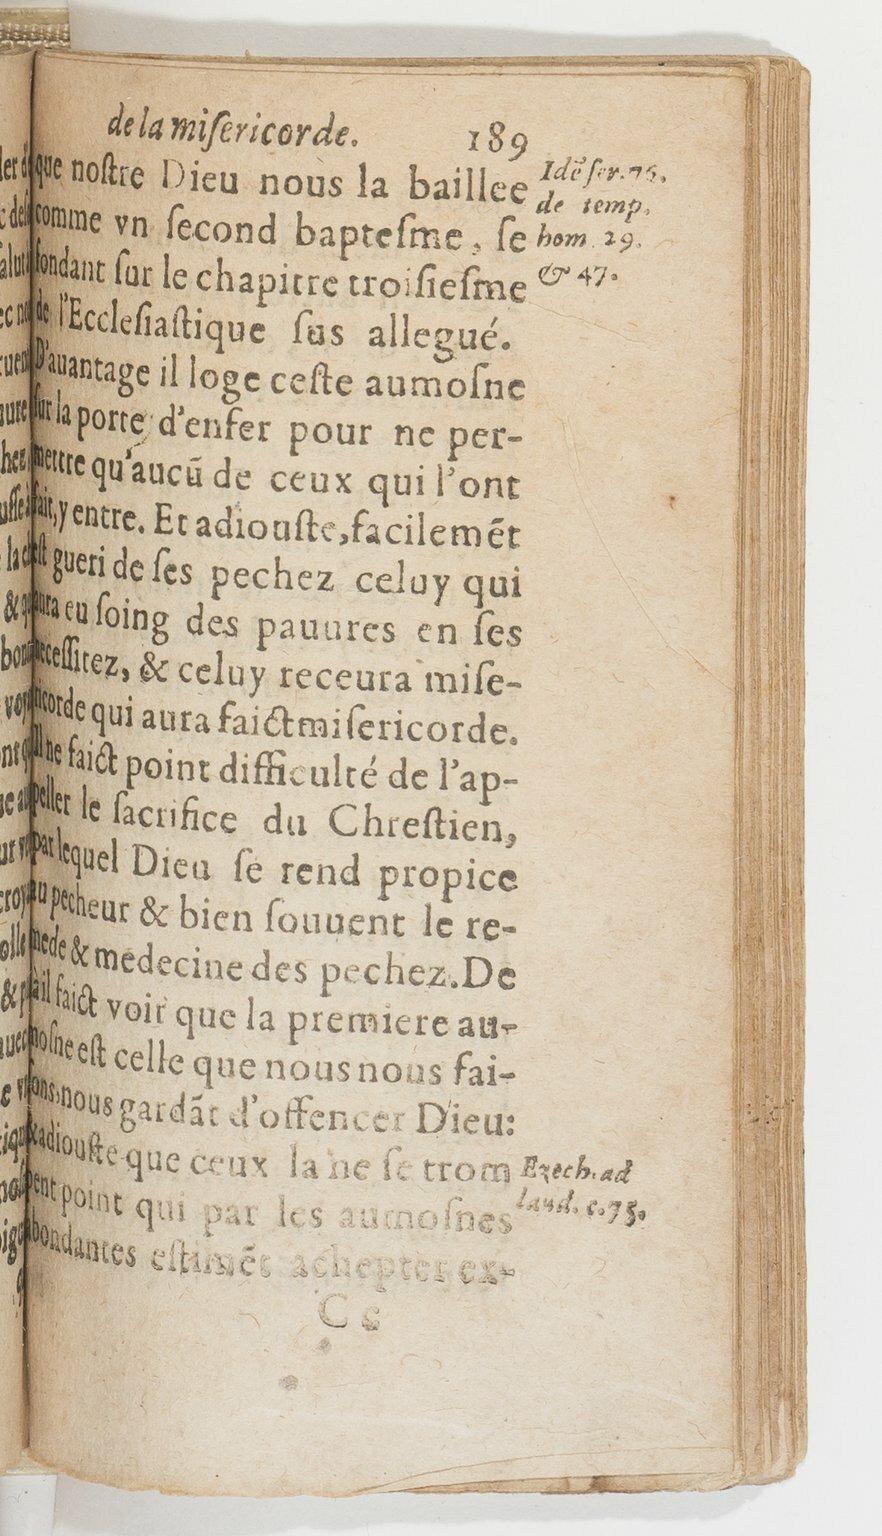 de la miſericorde. 189
que noſtre Dieu nous la baillee
comme vn ſecond bapteſme, ſe
fondant ſur le chapitre troiſieſme
de l'Eccleſiaſtique ſus allegué.
D'auantage il loge ceſte aumoſne
ſur la porte d'enfer pour ne per-
mettre qu'aucũ de ceux qui l'ont
fait, y entre. Et adiouſte, facilemẽt
eſt gueri de ſes pechez celuy qui
aura eu ſoing des pauures en ſes
neceſſitez, & celuy receura miſe-
ricorde qui aura faict miſericorde.
Il ne faict point difficulté de l'ap-
peller le ſacrifice du Chreſtien,
par lequel Dieu ſe rend propice
au pecheur & bien ſouuent le re-
mede & medecine des pechez. De
là il faict voir que la premiere au-
moſne eſt celle que nous nous fai-
ſons, nous gardãt d'offencer Dieu:
& adiouſte que ceux la ne ſe trom
pent point qui par les aumoſnes
abondantes eſtimẽt achepter ex-
C c
Idẽ ſer. 76.
de temp.
hom. 29.
& 47.
Ezech. ad
laud. c. 75.